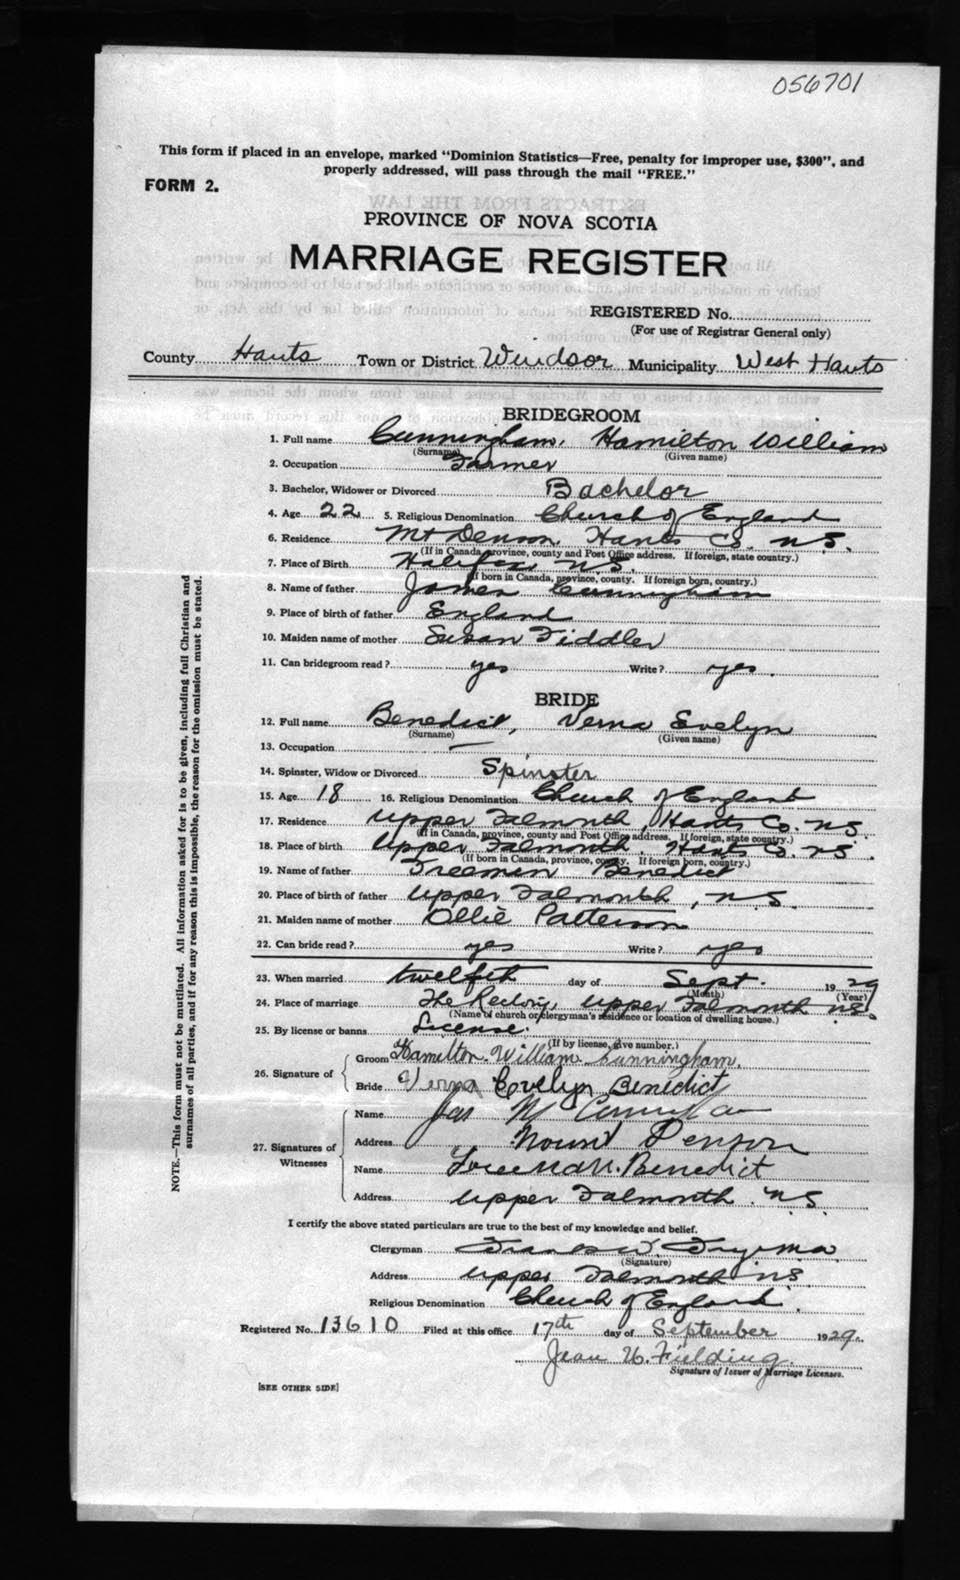 056701
This form if placed in an envelope, marked "Dominion Statistics—Free, penalty for improper use, $300", and
properly addressed, will pass through the mail "FREE."
FORM 2.
PROVINCE OF NOVA SCOTIA
MARRIAGE REGISTER
REGISTERED No.
(For use of Registrar General only)
County Hants Town or District Windsor Municipality West Hants
BRIDEGROOM
1. Full name Cunningham, Hamilton William
(Surname) (Given name)
2. Occupation Farmer
3. Bachelor, Widower or Divorced Bachelor
4. Age 22 5. Religious Denomination Church of England
6. Residence Mt Denson Hants Co. N.S.
(If in Canada, province, county and Post Office address. If foreign, state country.)
7. Place of Birth Halifax N.S.
(If born in Canada, province, county. If foreign born, country.)
8. Name of father James Cunningham
9. Place of birth of father England
10. Maiden name of mother Susan Fiddler
11. Can bridegroom read? yes Write? yes.
BRIDE
12. Full name Benedict, Verna Evelyn
(Surname) (Given name)
13. Occupation —
14. Spinster, Widow or Divorced Spinster
15. Age 18 16. Religious Denomination Church of England
17. Residence Upper Falmouth, Hants Co. N.S.
(If in Canada, province, county and Post Office address. If foreign, state country.)
18. Place of birth Upper Falmouth. Hants Co. N.S.
(If born in Canada, province, county. If foreign born, country.)
19. Name of father Freeman Benedict
20. Place of birth of father Upper Falmouth, N.S.
21. Maiden name of mother Ollie Patterson
22. Can bride read? yes Write? yes
23. When married twelfth day of Sept. 1929
(Month) (Year)
24. Place of marriage The Rectory, Upper Falmouth N.S.
(Name of church or clergyman's residence or location of dwelling house.)
25. By license or banns License.
(If by license, give number.)
26. Signature of
Groom Hamilton William Cunningham.
Bride Verna Evelyn Benedict
27. Signatures of
Witnesses
Name Jas M
Address Mount Denson
Name Freeman Benedict
Address Upper Falmouth N.S.
I certify the above stated particulars are true to the best of my knowledge and belief.
Clergyman
(Signature)
Address Upper Falmouth N.S.
Religious Denomination Church of England.
Registered No. 13610 Filed at this office 17th day of September 1929.
Jean U. Fielding.
Signature of Issuer of Marriage Licenses.
[SEE OTHER SIDE]
NOTE.—This form must not be mutilated. All information asked for is to be given, including full Christian and
surnames of all parties, and if for any reason this is impossible, the reason for the omission must be stated.